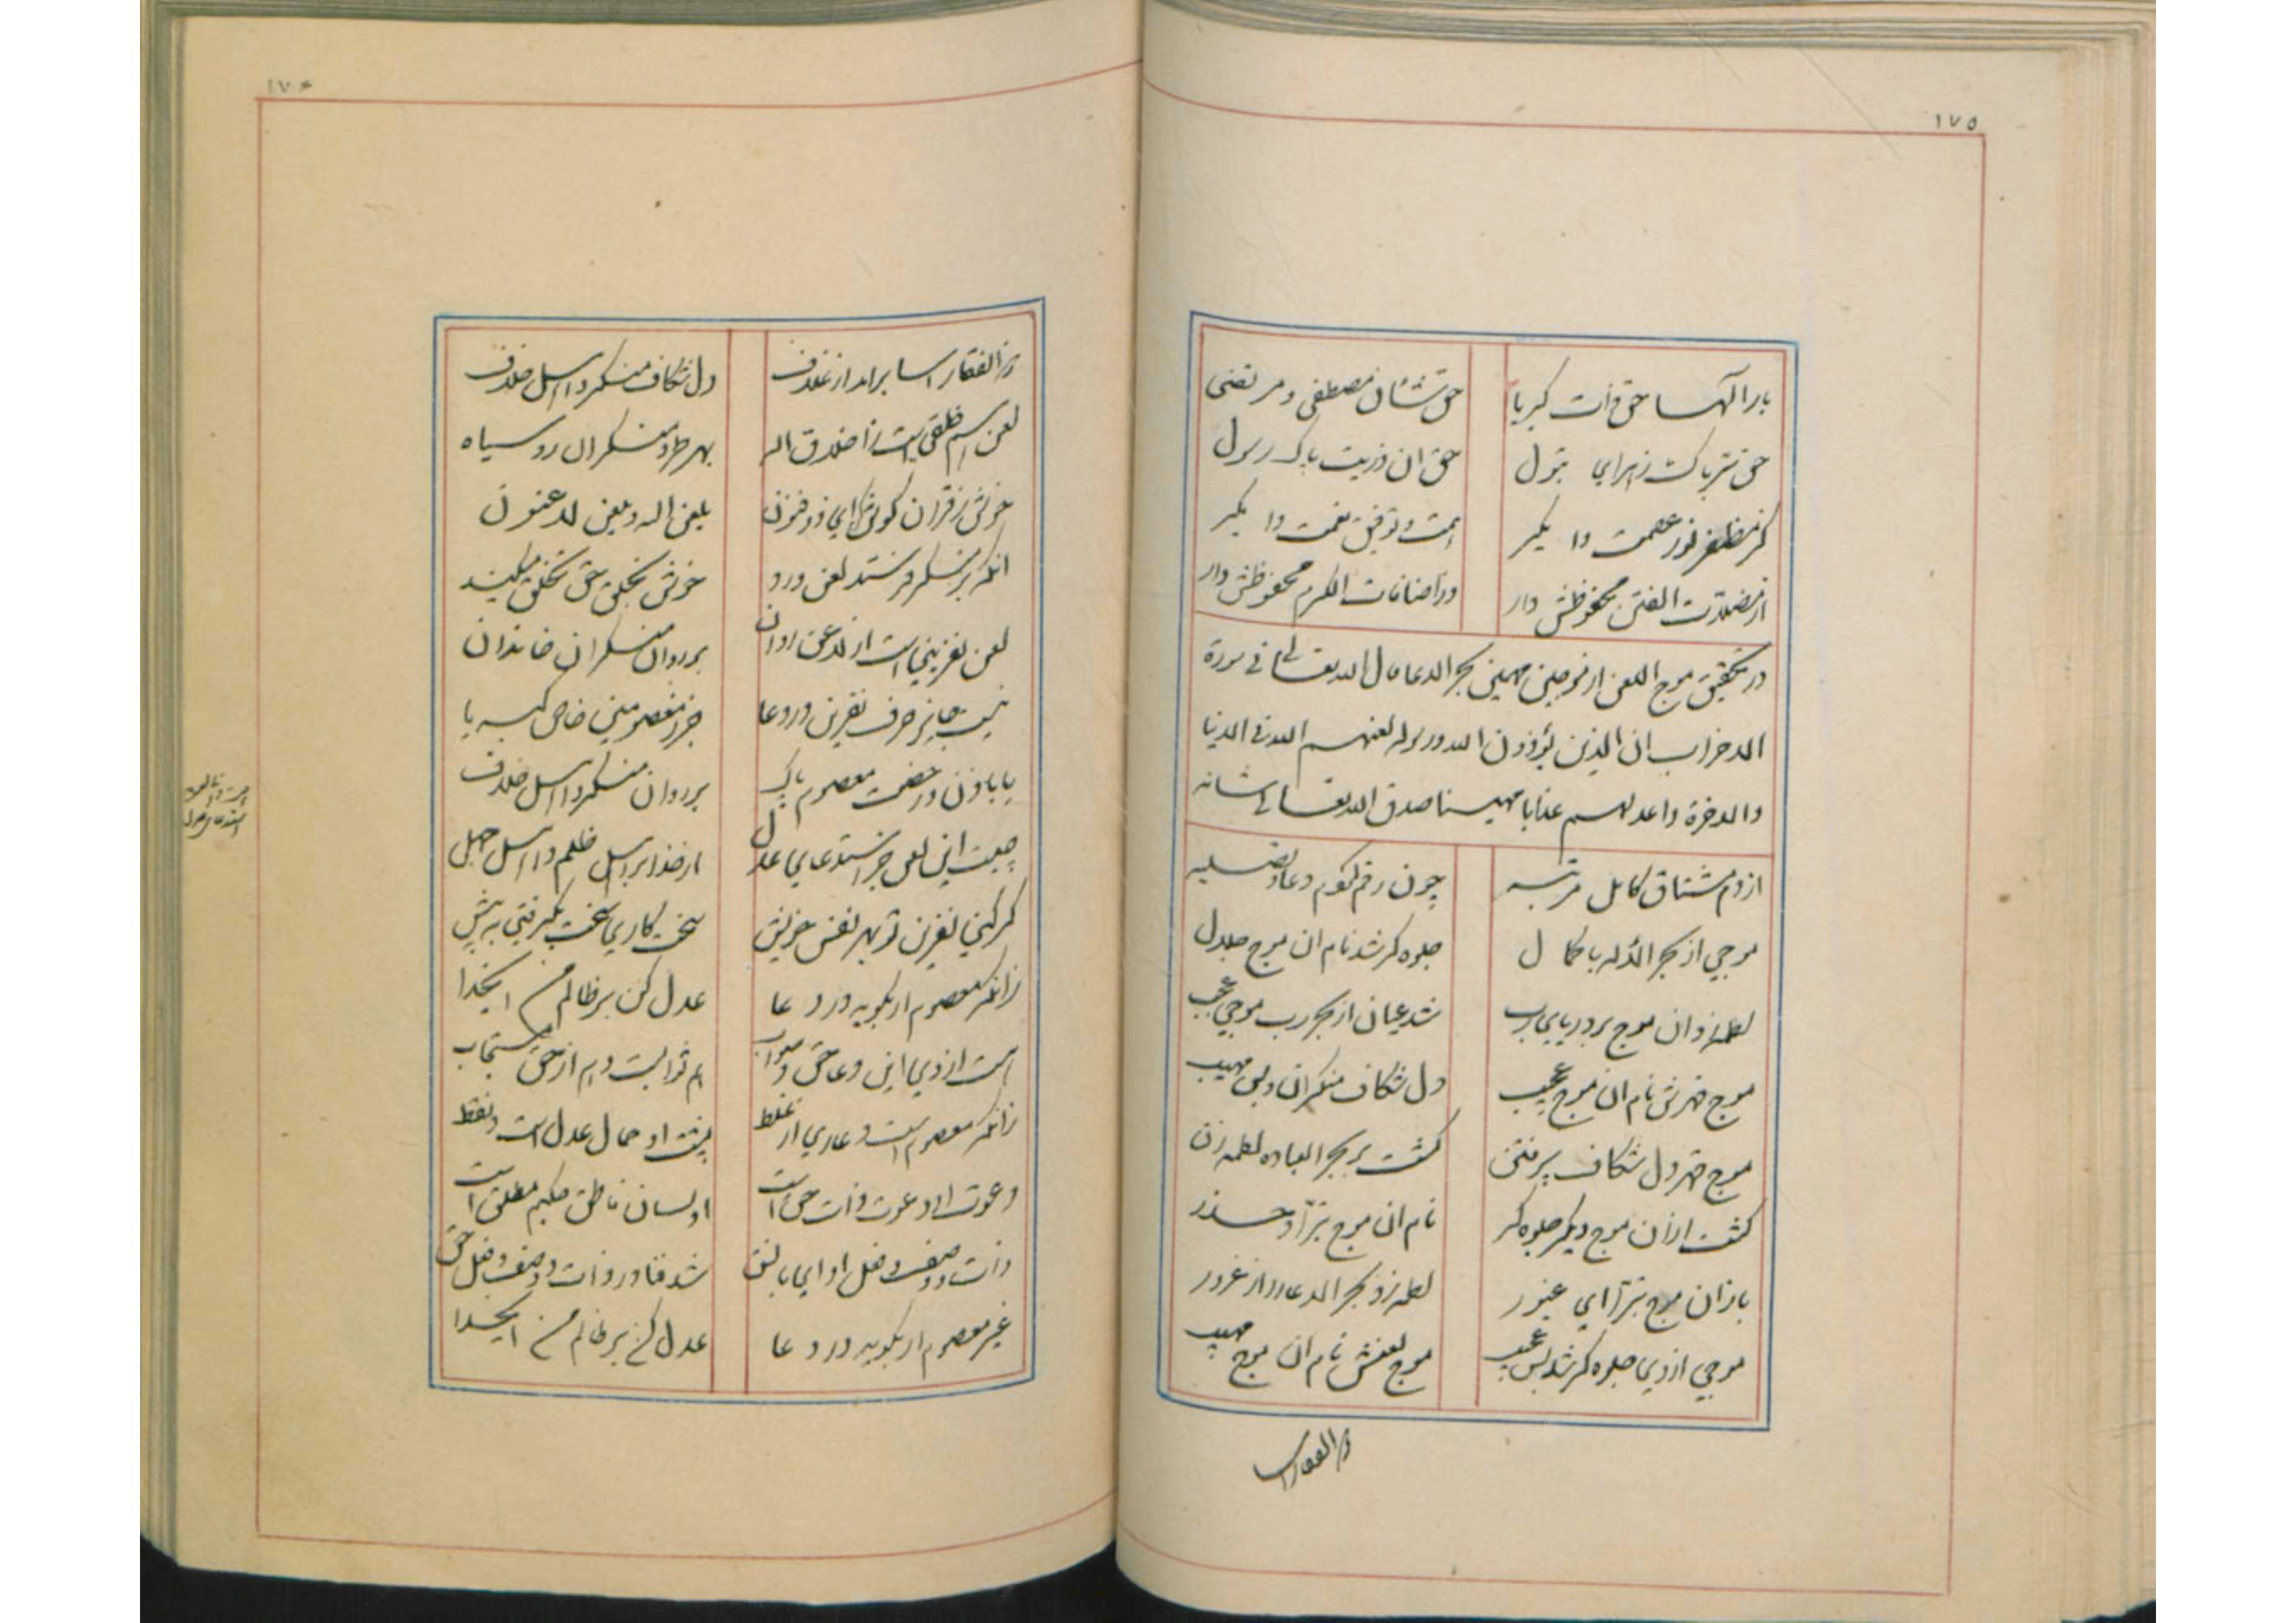 ١٧٥
بارالها حق ذات کبریا حق شان مصطفی و مرتضی
حق سر پاک زهرای بتول حق ان ذریت پاک رسول
کز مظفر نور عصمت وا مگیر همت و توفیق نعمت وا مگیر
از مضلات الفتن محفوظش دار
در تحقیق موج اللعن از موجین مهمین بحر الدعا قال الله تعالی فی سورة
الاحزاب ان الذین یؤذون الله ورسوله لعنهم الله فی الدنیا
والاخرة واعد لهم عذابا مهینا صدق الله تعالی شانه
ازدم مشتاق کامل مرتبه چون رقم کویم دعا و تصلیه
موجی از بحر الأله با کمال جلوه کر شد نام ان موج جلال
لطمه زد ان موج بر دریای رب شد عیان از بحر رب موجی عجب
موج قهرش نام ان موج عجیب دل شکاف منکران و بس مهیب
موج قهر دل شکاف پر فتن کشت بر بحر العباده لطمه زن
کشت ازان موج دیکر جلوه کر نام ان موج تبرّا و حذر
باز ان موج تبرّا ای غیور لطمه زد بحر الدعا را از غرور
موجی ازوی جلوه کر شد بس عجیب موج لعنش نام ان موج مهیب
ذو الفقار اسا
١٧۶
ذو الفقار اسا برامد از غلاف دل شکاف منکر و اهل خلاف
لعن اسم خلقی است زاخلاق اله بهر طرد منکران رو سیاه
خوش ز قران کوش کن ای ذو فنون یلعن الله و یلعن لاعنون
انکه بر منکر فرستد لعن و رد خوش بخلق حق تخلق میکند
لعن نفرینی است از لاعن روان بر روان منکران خاندان
نیست جایز حرف نفرین و دعا جز ز معصومین خاص کبریا
یا باذن و رخصت معصوم پاک بر روان منکر و اهل خلاف
چیست این لعن جز استدعای عدل از خدا بر اهل ظلم و اهل جهل
کر کنی نفرین تو بهر نفس خویش سخت کاری سخت بکرفتی به پیش
زانکه معصوم ار بکوید در دعا عدل کن بر ظالم من ایخدا
هست ازوی این دعا حق و صواب هم ثوابست و هم از حق مستجاب
زانکه معصوم است و عاری از غلط نیت او حال عدل است و فقط
دعوت او دعوت ذات حق است او لسان ناطق حکیم مطلق است
ذات و وصف و فعل او ای با نسق شد فنا در ذات و وصف و فعل حق
غیر معصوم ار بکوید در دعا عدل کن بر ظالم من ایخدا